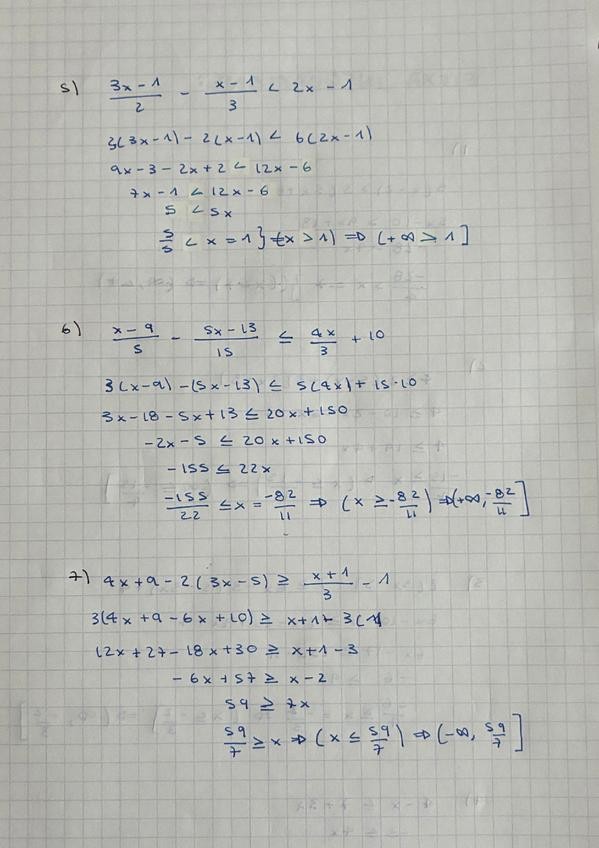 5) (3x-1)/2 - (x-1)/3 < 2x - 1
3(3x-1) - 2(x-1) < 6(2x-1)
9x-3-2x+2 < 12x-6
7x-1 < 12x-6
5 < 5x
5/5 < x = 1} {x > 1) ⇒ (+∞ > 1]
6) (x-9)/5 - (5x-13)/15 ≤ 4x/3 + 10
3(x-9) - (5x-13) ≤ 5(4x) + 15·10
3x-18-5x+13 ≤ 20x+150
-2x-5 ≤ 20x+150
-155 ≤ 22x
-155/22 ≤ x = -82/11 ⇒ (x ≥ -82/11) ⇒ (+∞, -82/11]
7) 4x+9-2(3x-5) ≥ (x+1)/3 - 1
3(4x+9-6x+10) ≥ x+1- 3(1
12x+27-18x+30 ≥ x+1-3
-6x+57 ≥ x-2
59 ≥ 7x
59/7 ≥ x ⇒ (x ≤ 59/7) ⇒ (-∞, 59/7]